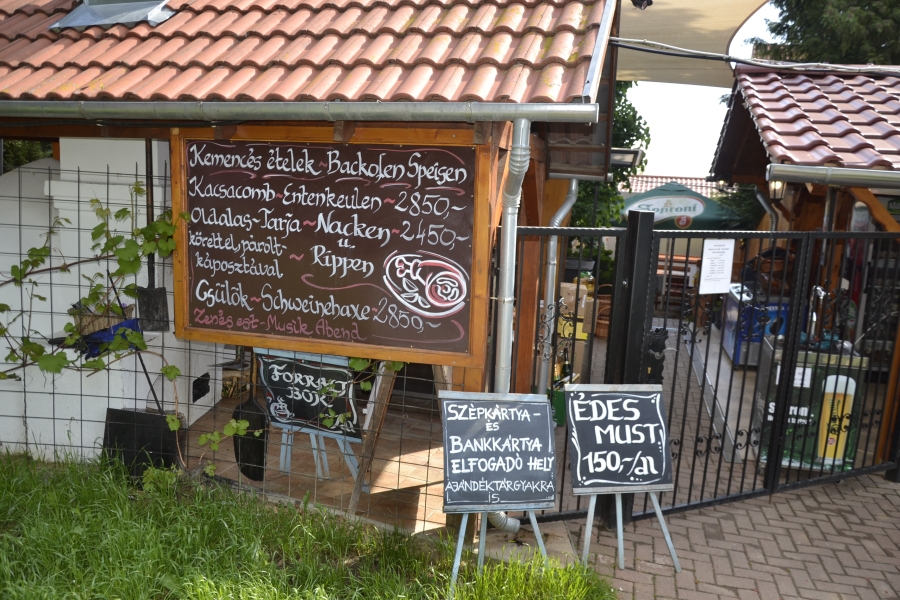 Kemencés ételek ~ Backofen Speisen
Kacsacomb ~ Entenkeulen ~ 2850,-
Oldalas-Tarja ~ Nacken ~ 2450,-
körettel, párolt u. Rippen
káposztával
Csülök ~ Schweinehaxe ~ 2850,-
Zenés est - Musik Abend
FORRALT
BOR
SZÉPKÁRTYA -
ÉS
BANKKÁRTYA
ELFOGADÓ HELY
AJÁNDÉKTÁRGYAKRA
IS.
ÉDES
MUST
150,-/dl
Soproni
Soproni